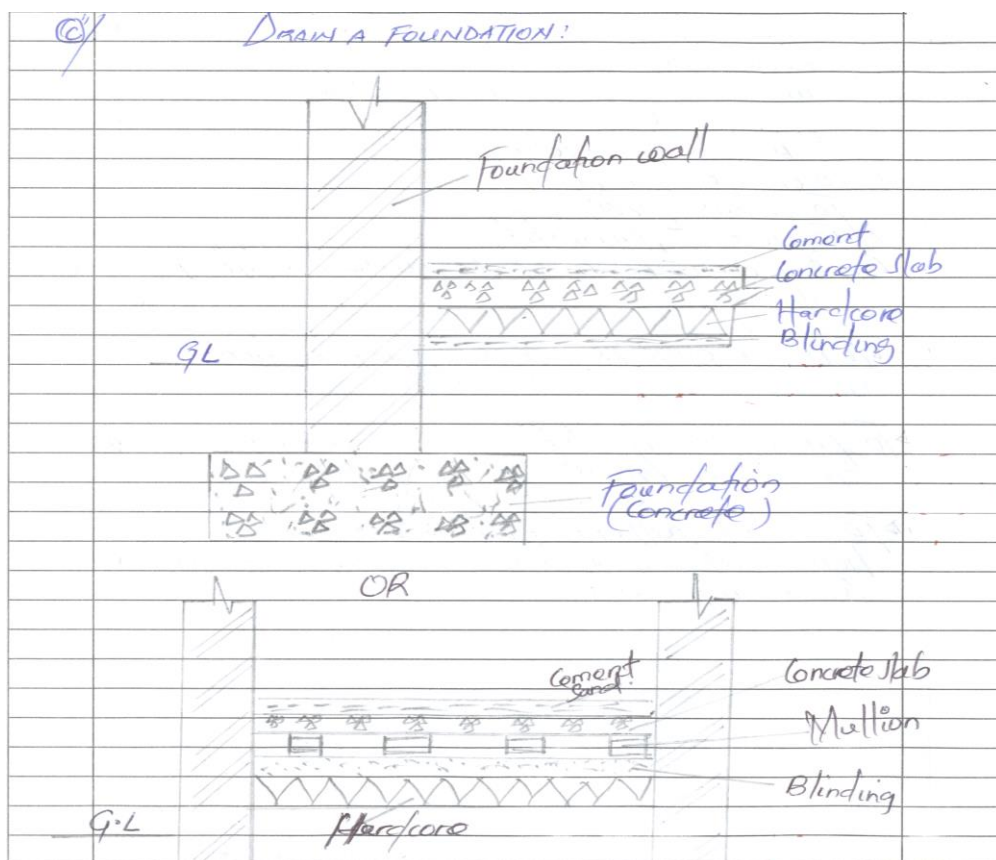 (C) DRAIN A FOUNDATION:
Foundation wall
Coment
Concrete slab
Hardcore
Blinding
GL
Foundation
(Concrete)
OR
Coment
sand
Concrete slab
Mullion
Blinding
G.L
Hardcore